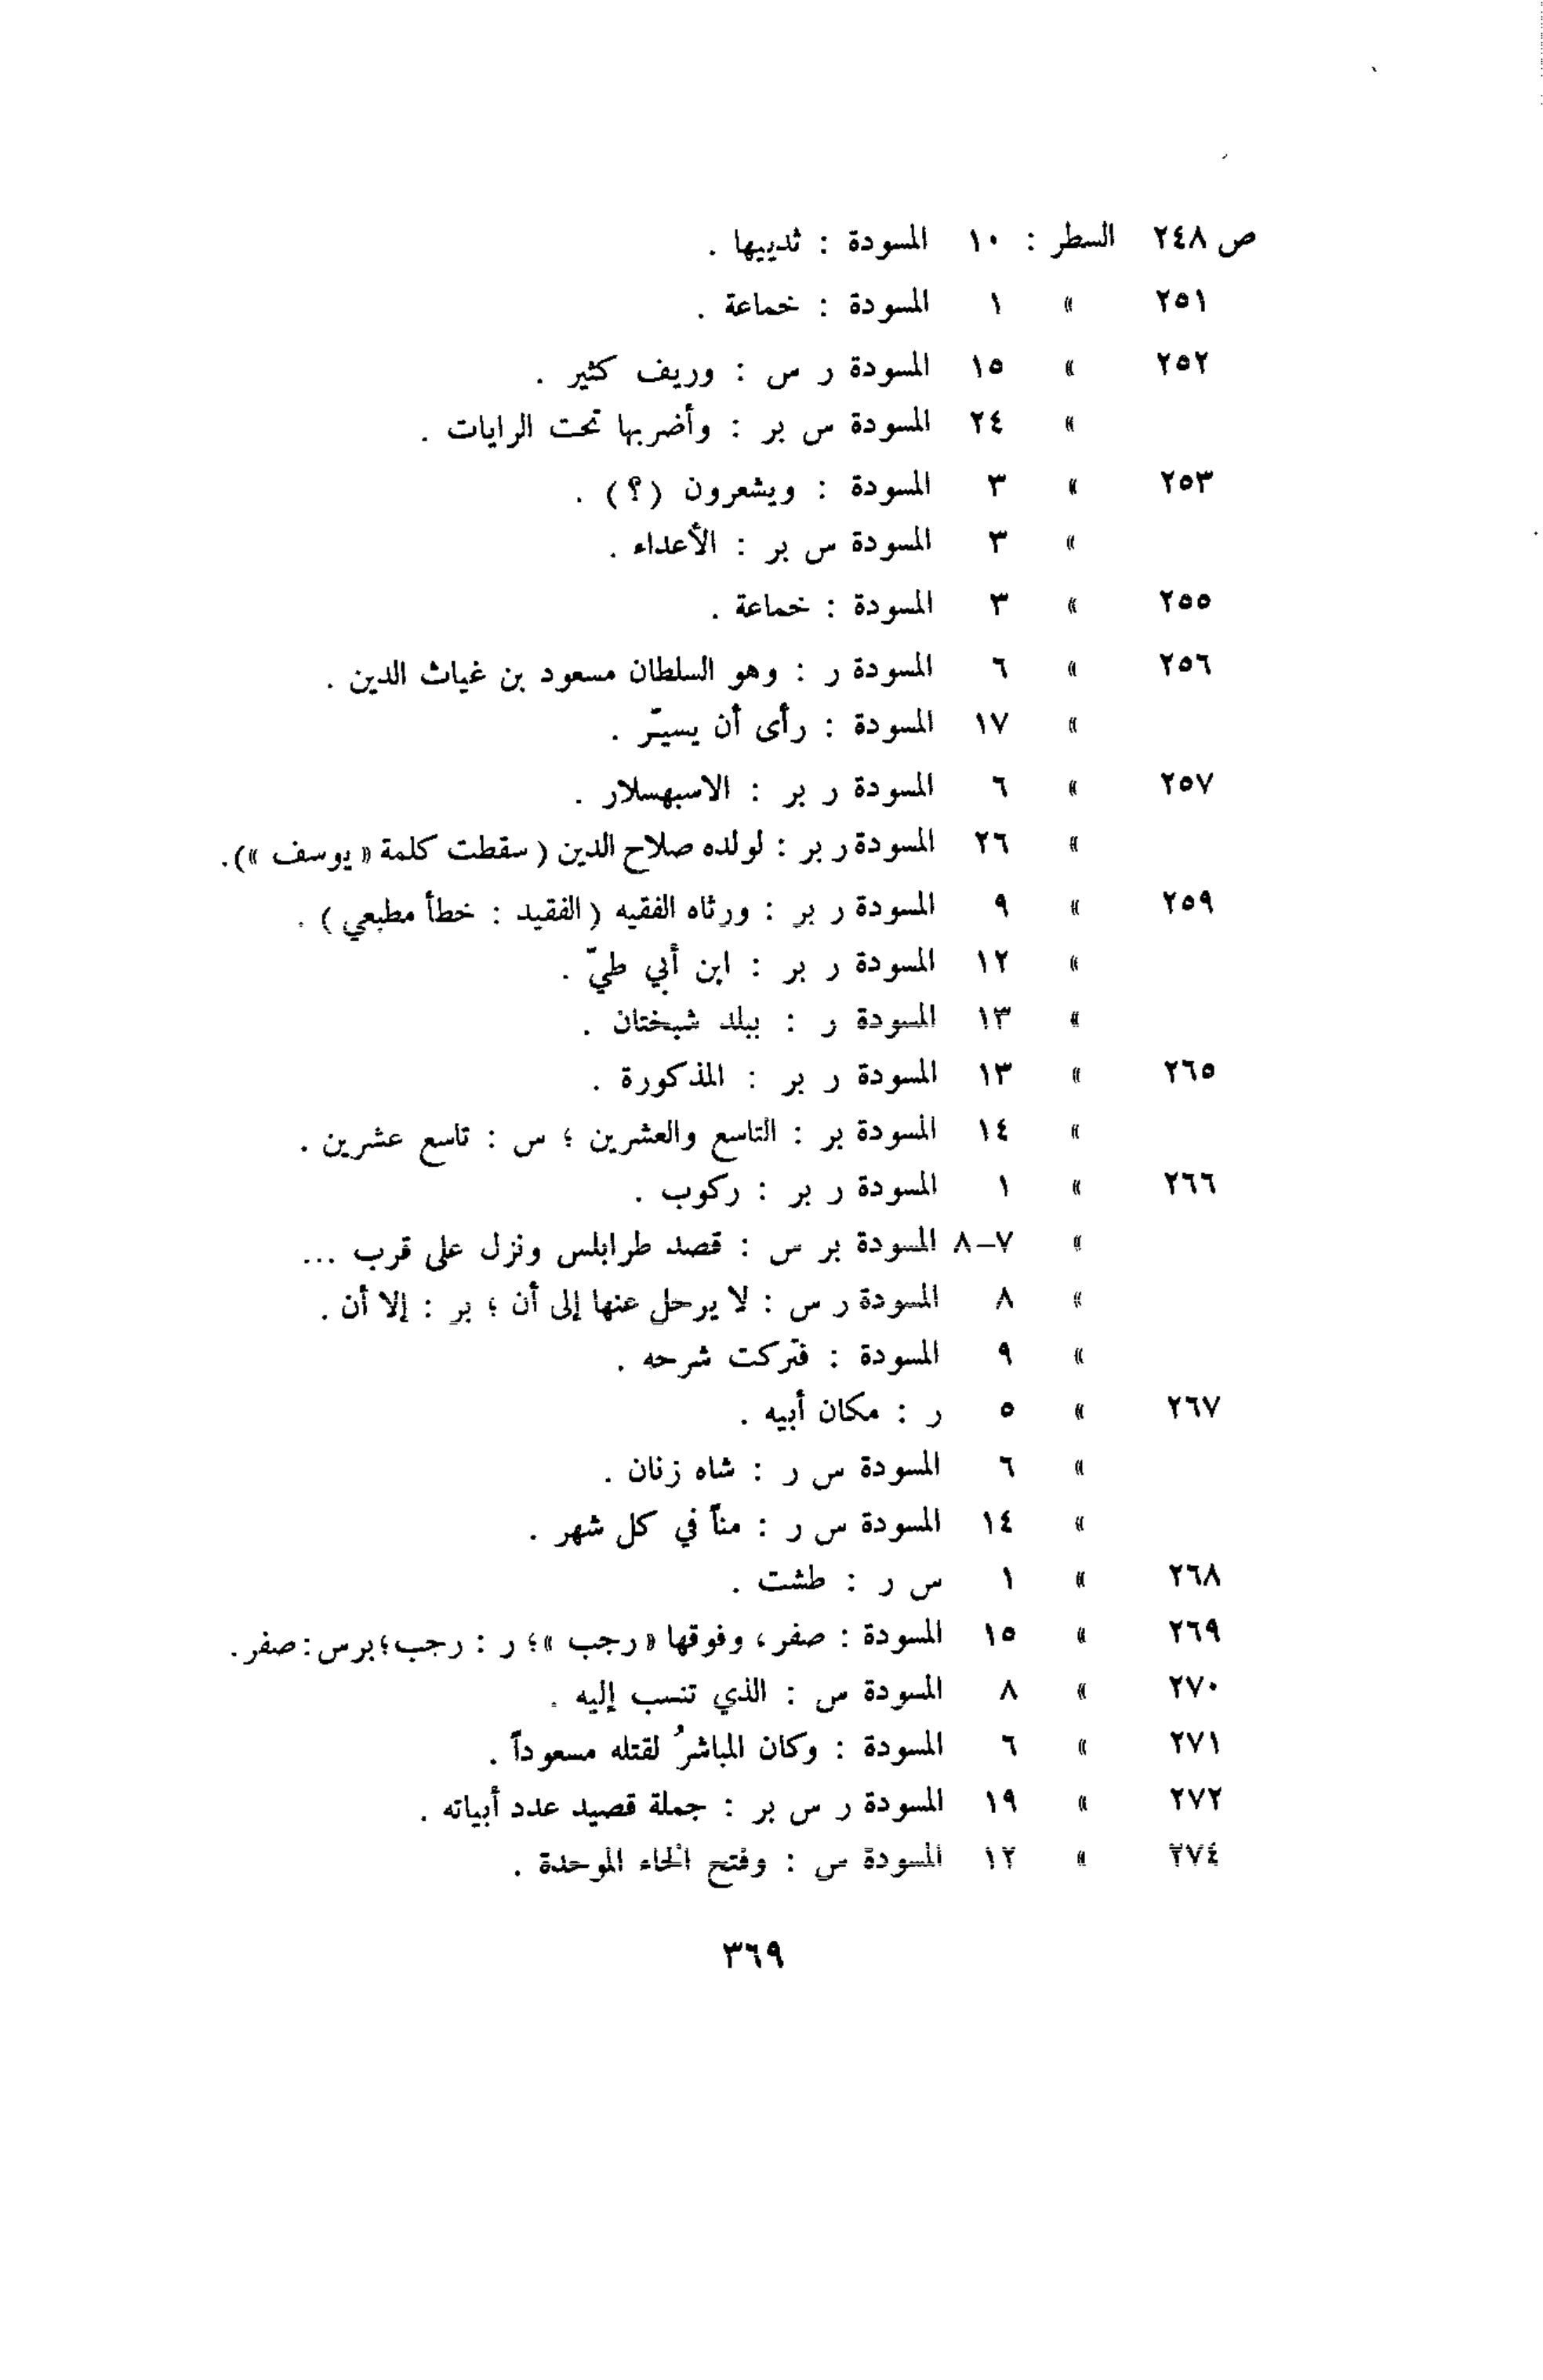 ص ٢٤٨ السطر : ١٠ المسودة : ثدييها .
٢٥١ » ١ المسودة : خماعة .
٢٥٢ » ١٥ المسودة ر س : وريف كثير .
» ٢٤ المسودة س بر : وأضربها تحت الرايات .
٢٥٣ » ٣ المسودة : ويشعرون (؟) .
» ٣ المسودة س بر : الأعداء .
٢٥٥ » ٣ المسودة : خماعة .
٢٥٦ » ٦ المسودة ر : وهو السلطان مسعود بن غياث الدين .
» ١٧ المسودة : رأى أن يسيّر .
٢٥٧ » ٦ المسودة ر بر : الاسبهسلار .
» ٢٦ المسودة ر بر : لولده صلاح الدين ( سقطت كلمة « يوسف » ).
٢٥٩ » ٩ المسودة ر بر : ورثاه الفقيه (الفقيد : خطأ مطبعي ) .
» ١٢ المسودة ر بر : ابن أبي طيّ .
» ١٣ المسودة ر : ببلد شبختان .
٢٦٥ » ١٣ المسودة ر بر : المذكورة .
» ١٤ المسودة بر : التاسع والعشرين ؛ س : تاسع عشرين .
٢٦٦ » ١ المسودة ر بر : ركوب .
» ٧-٨ المسودة بر س : قصد طرابلس ونزل على قرب ...
» ٨ المسودة ر س : لا يرحل عنها إلى أن ؛ بر : إلا أن .
» ٩ المسودة : فتركت شرحه .
٢٦٧ » ٥ ر : مكان أبيه .
» ٦ المسودة س ر : شاه زنان .
» ١٤ المسودة س ر : مناً في كل شهر .
٢٦٨ » ١ س ر : طشت .
٢٦٩ » ١٥ المسودة : صفر، وفوقها « رجب »؛ ر : رجب؛ بر س : صفر.
٢٧٠ » ٨ المسودة س : الذي تنسب إليه .
٢٧١ » ٦ المسودة : وكان المباشرُ لقتله مسعوداً .
٢٧٢ » ١٩ المسودة ر س بر : جملة قصيد عدد أبياته .
٢٧٤ » ١٢ المسودة س : وفتح الحاء الموحدة .
٣٦٩